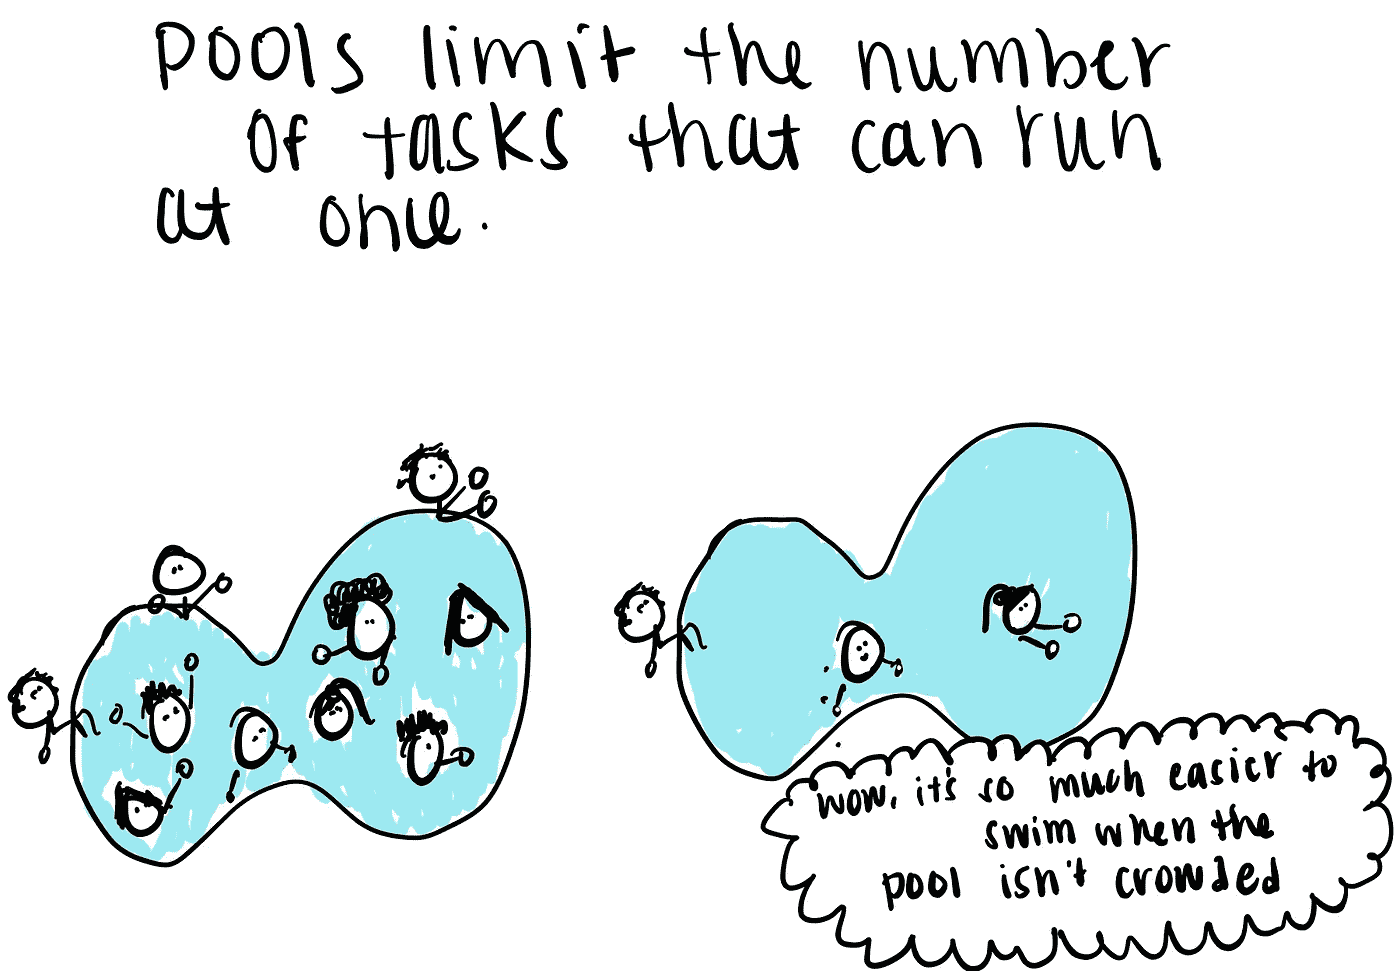 pools limit the number
of tasks that can run
at once.
wow, it's so much easier to
swim when the
pool isn't crowded